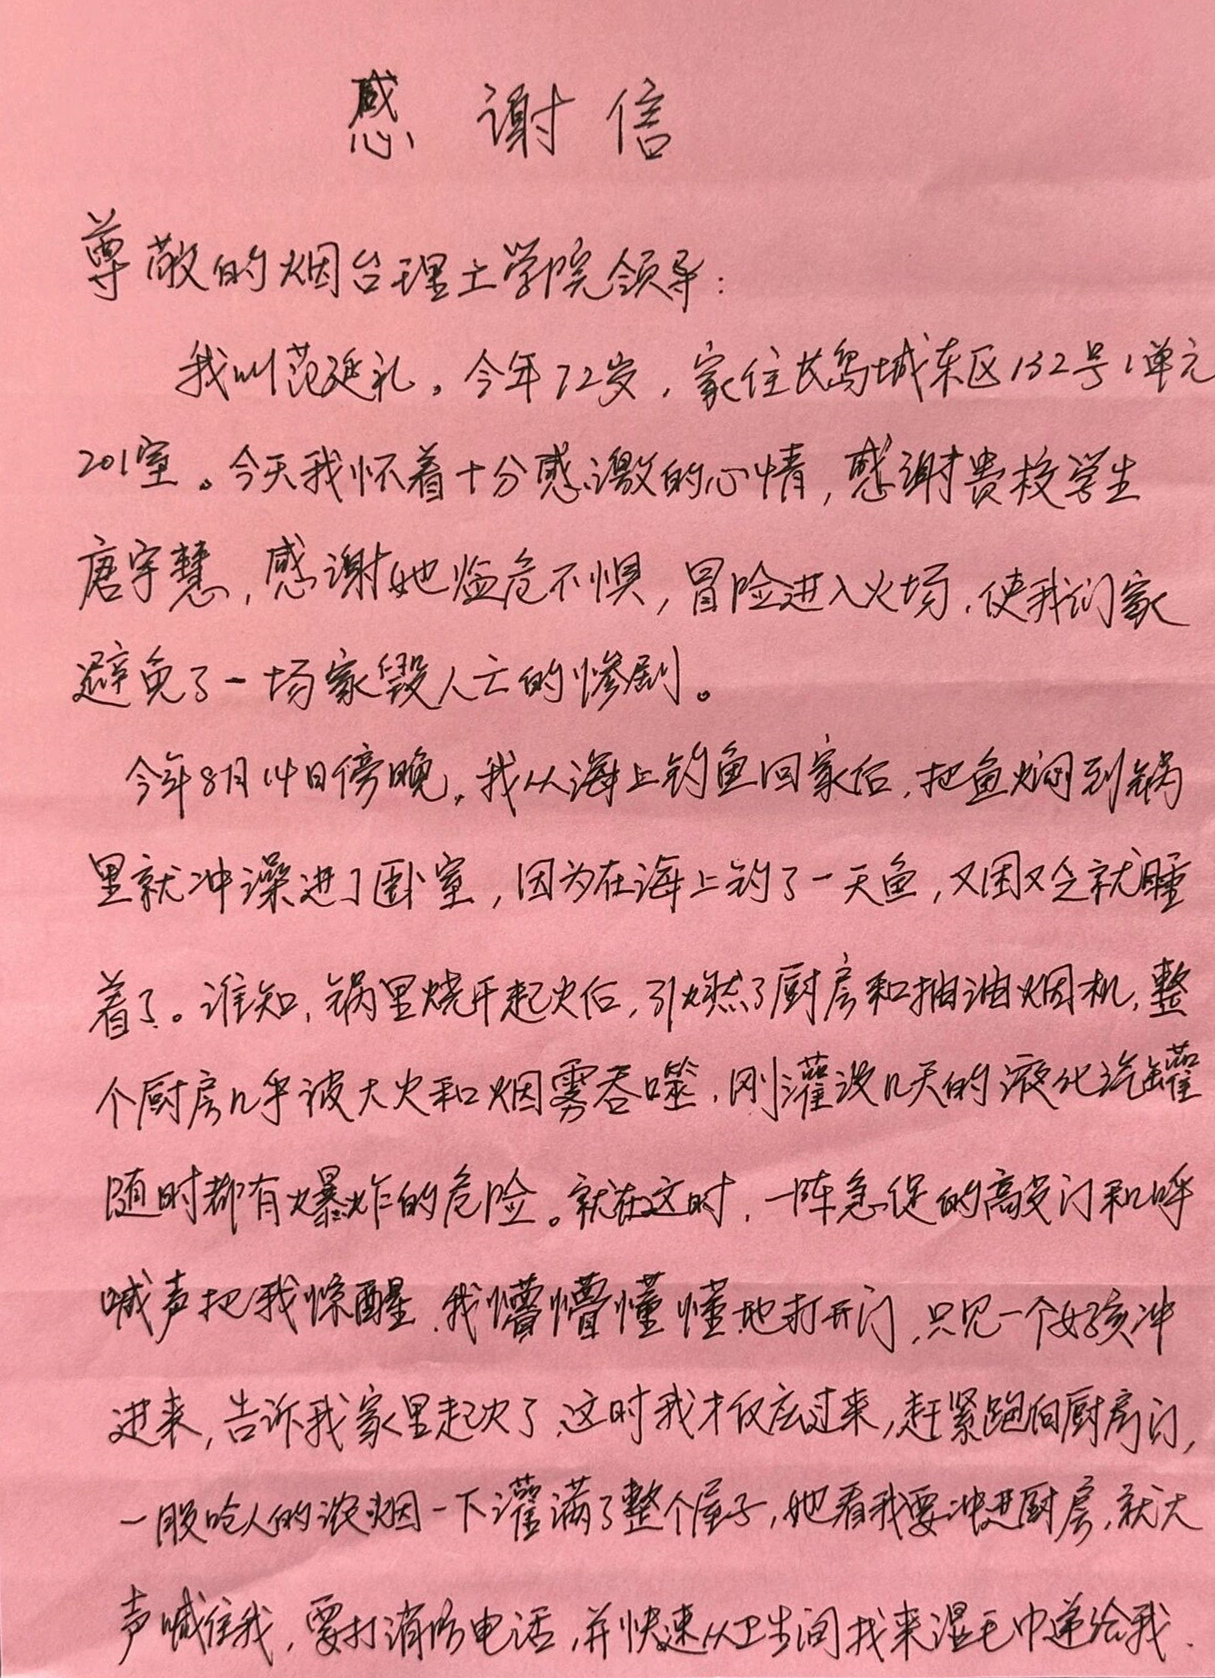 感谢信
尊敬的烟台理工学院领导：
我叫范延礼。今年72岁，家住长岛城东区132号1单元
201室。今天我怀着十分感激的心情，感谢贵校学生
唐宇慧，感谢她临危不惧，冒险进入火场，使我们家
避免了一场家毁人亡的惨剧。
今年8月14日傍晚，我从海上钓鱼回家后，把鱼焖到锅
里就冲澡进了卧室，因为在海上钓了一天鱼，又困又乏就睡
着了。谁知，锅里烧开起火后，引燃了厨房和抽油烟机，整
个厨房几乎被大火和烟雾吞噬，刚灌没几天的液化汽罐
随时都有爆炸的危险。就在这时，一阵急促的敲门和呼
喊声把我惊醒，我懵懵懂懂地打开门，只见一个女孩冲
进来，告诉我家里起火了，这时我才反应过来，赶紧跑向厨房门，
一股呛人的浓烟一下灌满了整个屋子，她看我要冲进厨房，就大
声喊住我，要打消防电话，并快速从卫生间找来湿毛巾递给我，